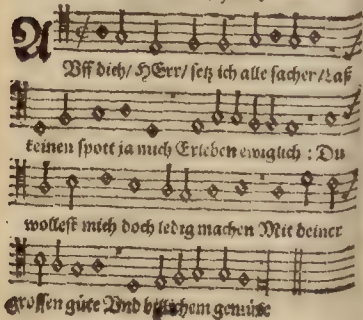 Auff dich / HErr / setz ich alle sacher / Laß
keinen spott ja mich Erleben ewiglich : Du
wollest mich doch ledig machen Mit deiner
grossen güte Vnd